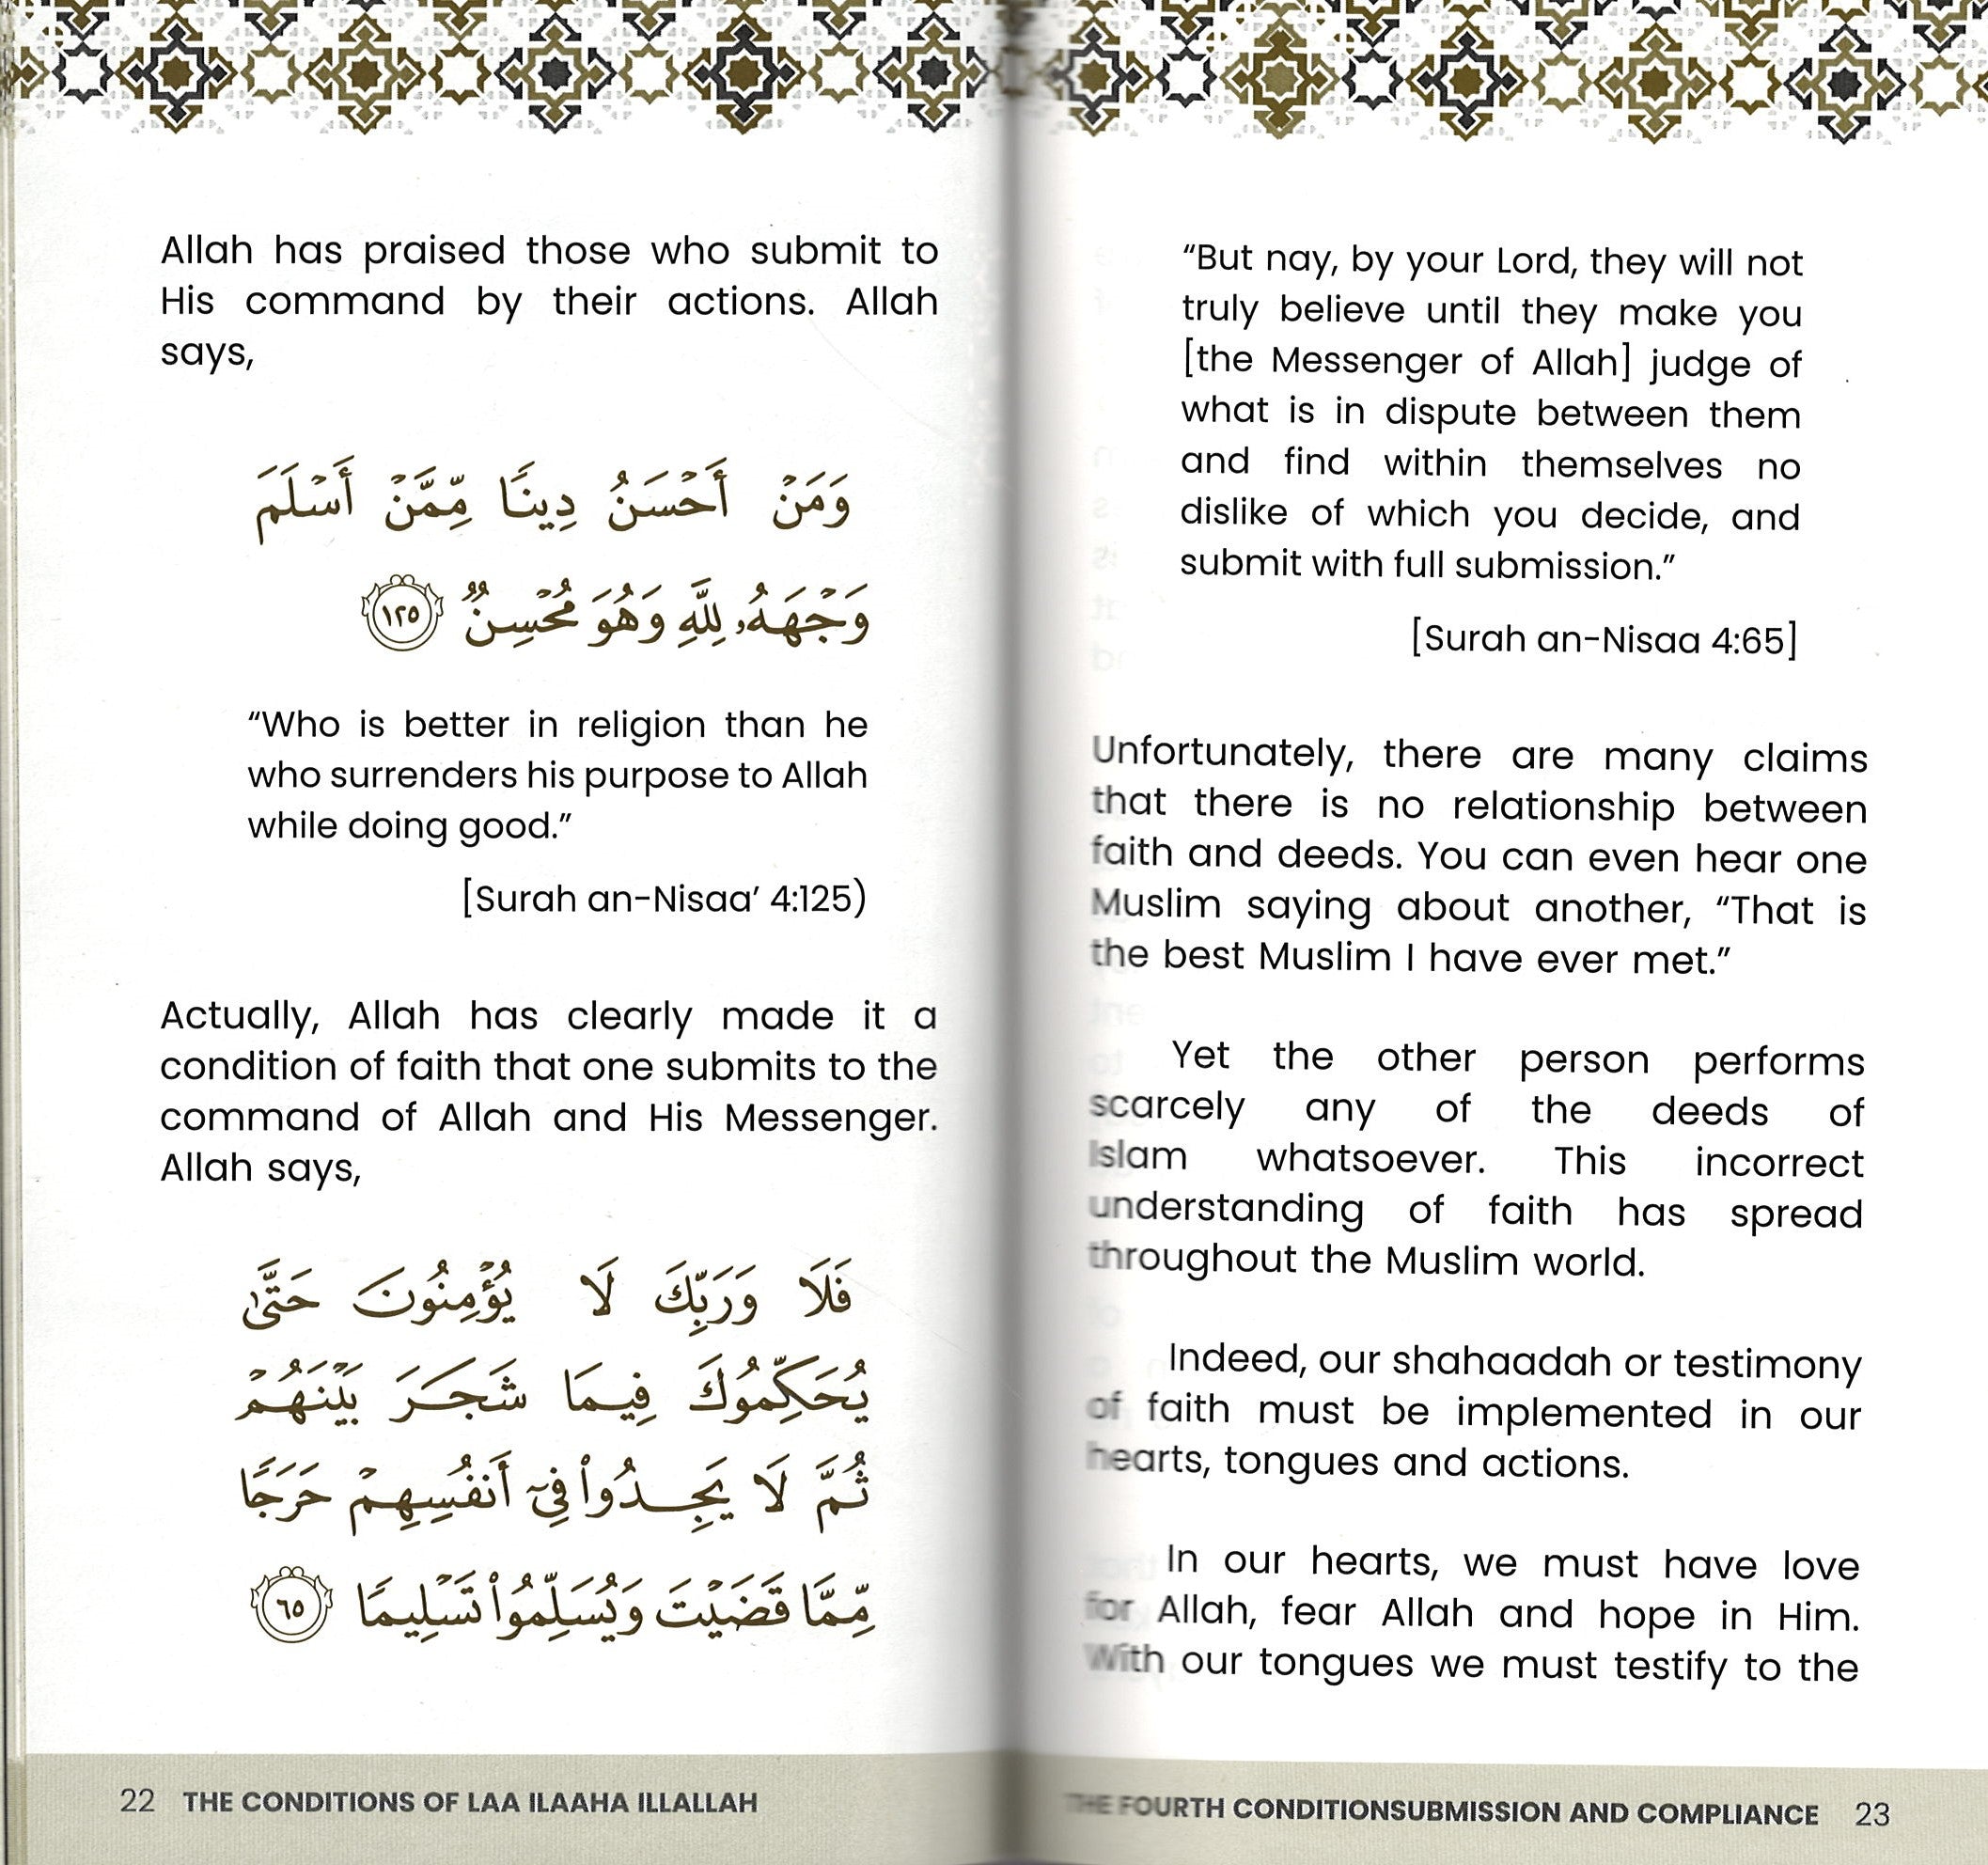 Allah has praised those who submit to
His command by their actions. Allah
says,
وَمَنْ أَحْسَنُ دِينًا مِّمَّنْ أَسْلَمَ
وَجْهَهُۥ لِلَّهِ وَهُوَ مُحْسِنٌ ١٢٥
“Who is better in religion than he
who surrenders his purpose to Allah
while doing good.”
[Surah an-Nisaa’ 4:125)
Actually, Allah has clearly made it a
condition of faith that one submits to the
command of Allah and His Messenger.
Allah says,
فَلَا وَرَبِّكَ لَا يُؤْمِنُونَ حَتَّىٰ
يُحَكِّمُوكَ فِيمَا شَجَرَ بَيْنَهُمْ
ثُمَّ لَا يَجِدُوا۟ فِىٓ أَنفُسِهِمْ حَرَجًا
مِّمَّا قَضَيْتَ وَيُسَلِّمُوا۟ تَسْلِيمًا ٦٥
22 THE CONDITIONS OF LAA ILAAHA ILLALLAH
“But nay, by your Lord, they will not
truly believe until they make you
[the Messenger of Allah] judge of
what is in dispute between them
and find within themselves no
dislike of which you decide, and
submit with full submission.”
[Surah an-Nisaa 4:65]
Unfortunately, there are many claims
that there is no relationship between
faith and deeds. You can even hear one
Muslim saying about another, “That is
the best Muslim I have ever met.”
Yet the other person performs
scarcely any of the deeds of
Islam whatsoever. This incorrect
understanding of faith has spread
throughout the Muslim world.
Indeed, our shahaadah or testimony
of faith must be implemented in our
hearts, tongues and actions.
In our hearts, we must have love
for Allah, fear Allah and hope in Him.
With our tongues we must testify to the
THE FOURTH CONDITIONSUBMISSION AND COMPLIANCE 23